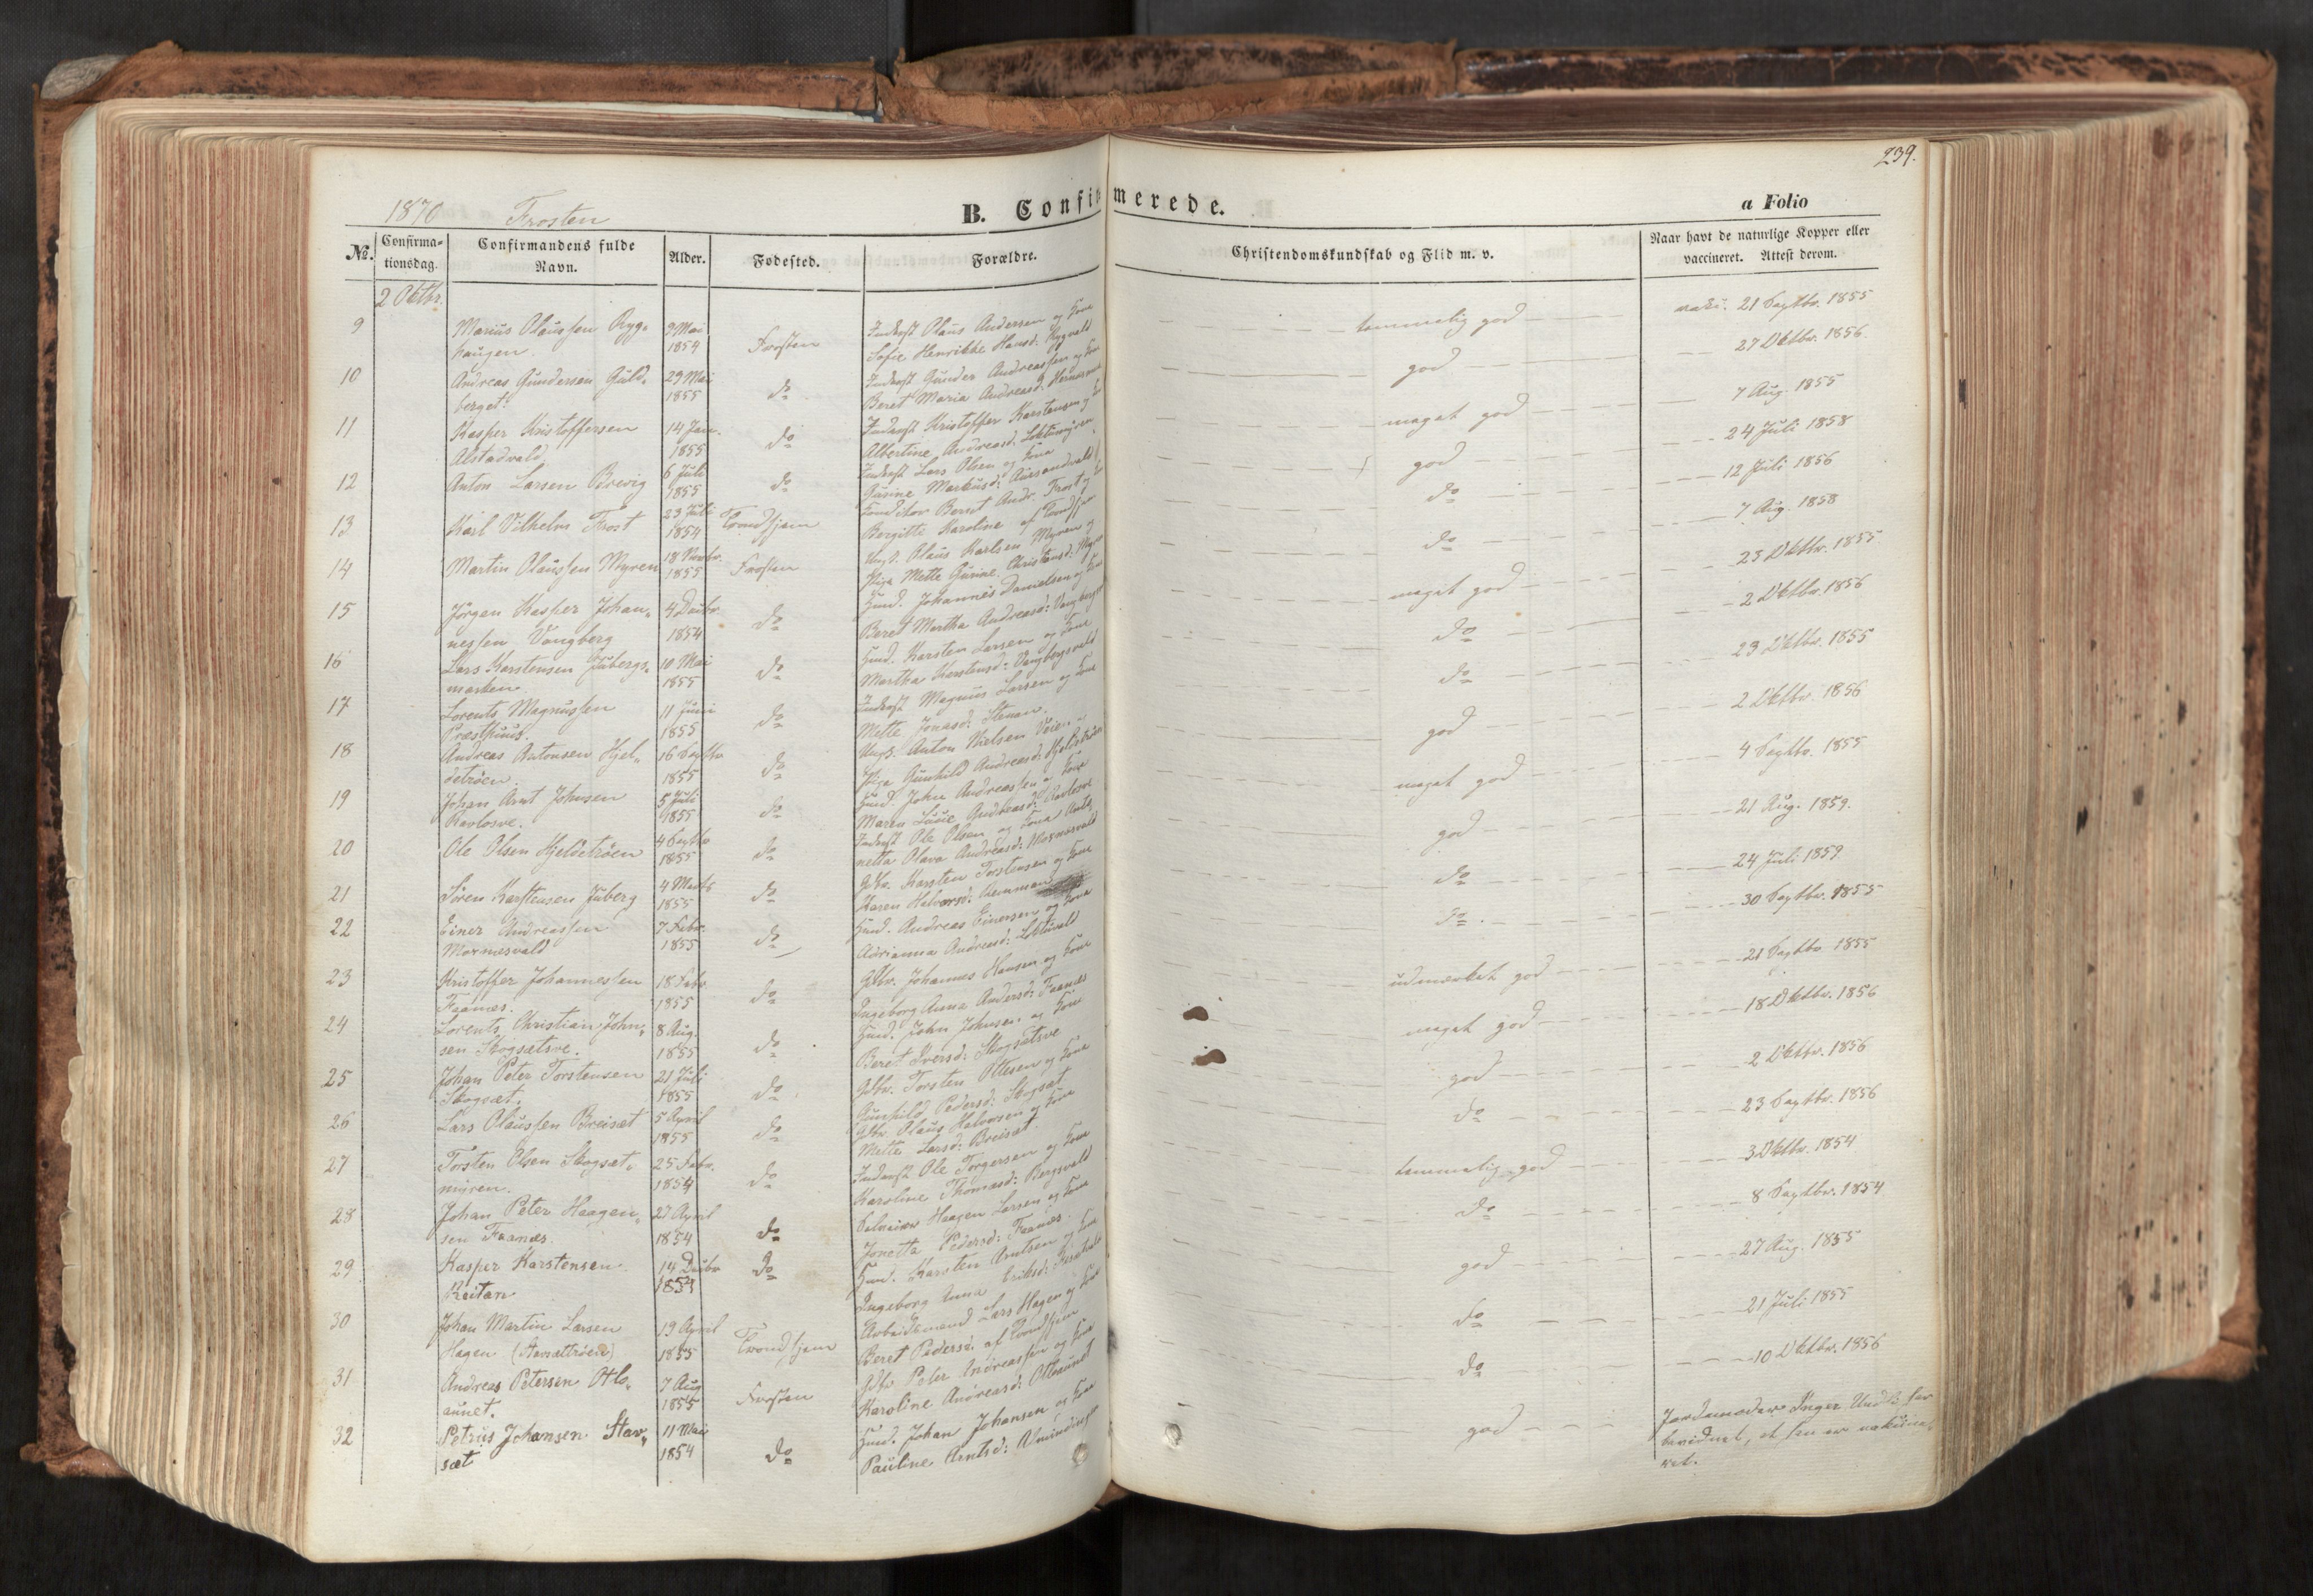 239.
1870 Frosten
B. Confirmerede.
a Folio
No. Confirmationsdag. Confirmandens fulde Navn. Alder. Fødested. Forældre. Christendomskundskab og Flid m. v. Naar havt de naturlige Kopper eller vaccineret. Attest derom.
2 Oktbr.
9 Marius Olaussen Ryg- 9 Mai Indrst Olaus Andersen og Kone
haugen. 1854 Frosten Sofie Henrikke Hansd: Rygvald temmelig god 21 Septbr. 1855
10 Andreas Gundersen Guld- 29 Mai Indrst Gunder Andreassen og Kone
berget. 1855 do Beret Maria Andreasd: god 27 Oktbr. 1856.
11 Kasper Kristoffersen 14 Jan. Indrst Kristoffer Karstensen og
Alstadvald 1855 do Albertine Andreasd. Loktumyren meget god 7 Aug. 1855
12 Anton Larsen Brevig 6 Juli Indrst Lars Olsen og Kone
1855 do Gurine Markusd: god 24 Juli 1858
13 Karl Vilhelm Frost 23 Juli Konditor Bernt Andr. Frost og
1854 Trondhjem Bergitte Karoline af Trondhjem do 12 Juli 1856
14 Martin Olaussen Myren 18 Novbr. Ungk. Olaus Karlsen Myren og
1855 Frosten Pige Mette Gurine Christensd: do 7 Aug. 1858
15 Jørgen Kasper Johan- 4 Decbr. Husm. Johannes Danielsen og Kone
nessen Vangberg 1854 do Beret Martha Andreasd: meget god 23 Oktbr. 1855
16 Lars Karstensen Jubergs- 10 Mai Husm. Karsten Larsen og Kone
marken 1855 do Martha Karstensd: Vangbergsvald do 2 Oktbr. 1856
17 Lorents Magnussen 11 Juni Indrst Magnus Larsen og Kone
Præsthuus. 1855 do Mette Jonasd: Stenan. do 23 Oktbr. 1855
18 Andreas Antonsen Hjel- 16 Septbr. Ungk. Anton Nielsen Veien
detrøen. 1855 do Pige Gunhild Andreasd: Hjeldetrøen god 2 Oktbr. 1856
19 Johan Arnt Johnsen 5 Juli Husm. John Andreassen og Kone
Ravlosve. 1855 do Maren Andreasd: Ravlosve meget god 4 Septbr. 1855
20 Ole Olsen Hjeldetrøen 4 Septbr. Indrst Ole Olsen og Kone
1855 do netta Olava Andreasd: Mornæsvald god 21 Aug. 1859.
21 Søren Karstensen Juberg 4 Marts Gdbr. Karsten Torstensen og Kone
1855 do Karen Halvorsd: do 24 Juli 1859.
22 Einer Andreassen 7 Febr. Husm. Andreas Einersen og Kone
Mornæsvald 1855 do Adrianna Andreasd: Loktuvald do 30 Septbr. 1855
23 Kristoffer Johannessen 18 Febr. Gdbr. Johannes Hansen og Kone
Faanæs. 1855 do Ingeborg Anna Andersd: Faanæs udmerket god 21 Septbr. 1855
24 Lorents Christian John- 8 Aug. Husm. John Johnsen og Kone
sen Skogsætsve. 1855 do Beret Iversd: Skogsætsve meget god 18 Oktbr. 1856
25 Johan Peter Torstensen 21 Juli Gdbr. Torsten Ottesen og Kone
Skogsæt. 1855 do Gunhild Pedersd: Skogsæt god 2 Oktbr. 1856
26 Lars Olaussen Breisæt 5 April Gdbr. Olaus Halvorsen og Kone
1855 do Mette Larsd: Breisæt do 23 Septbr. 1856
27 Torsten Olsen Skogsæt- 25 Febr. Indrst Ole Torgersen og Kone
myren. 1854 do Karoline Thomasd: Bergsvald temmelig god 3 Oktbr. 1854
28 Johan Peter Haagen- 27 April Selveier Haagen Larsen og Kone
sen Faanæs. 1854 do Jonetta Pedersd: Faanæs. do 8 Septbr. 1854
29 Kasper Karstensen 14 Decbr. Husm. Karsten Arntsen og Kone
Reitan 1854 do Ingeborg Anna Eriksd: god 27 Aug. 1855
30 Johan Martin Larsen 19 April Arbeidsmand Lars Hagen og Kone
Hagen 1855 Trondhjem Beret Pedersd. af Trondhjem do 21 Juli 1855
31 Andreas Petersen Otlo- 7 Aug. Gdbr. Peter Andreassen og Kone
aunet. 1855 Frosten Karoline Andreasd: do 10 Oktbr. 1856
32 Petrus Johansen Stav- 11 Mai Husm. Johan Johansen og Kone god Jordemoder Inger har
sæt 1854 do Pauline Arntsd: bevidnet, at han er vakcine-
ret.